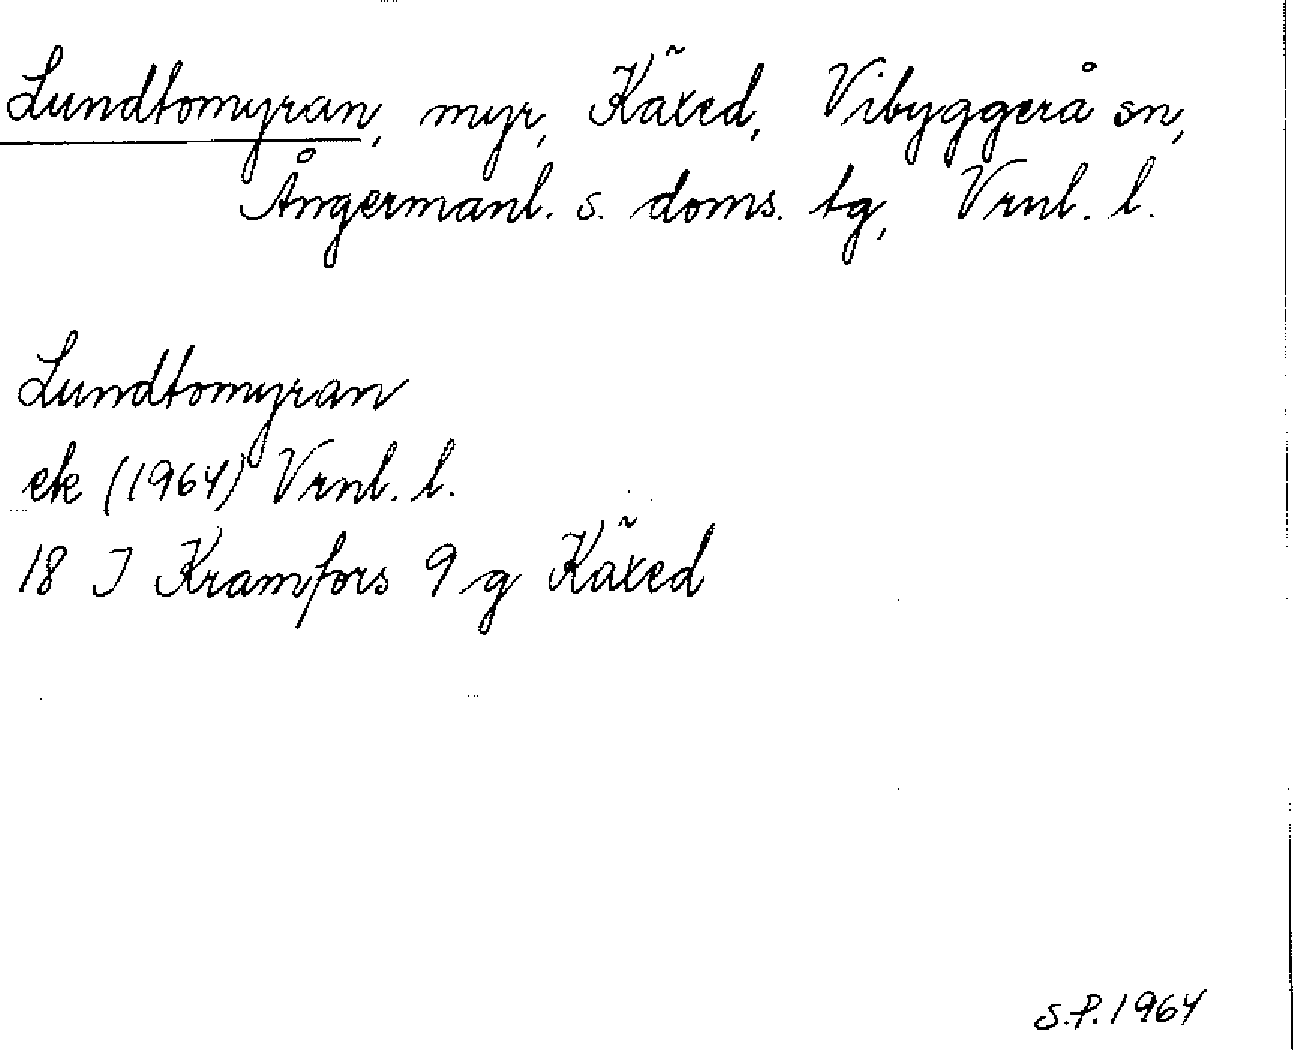 Lundtomyran, myr, Käxed, Vibyggerå sn,
Ångermanl. s. doms. tg, Vrnl. l.
Lundtomyran
ek (1964) Vrnl. l.
18 J Kramfors 9 g Käxed
S.P. 1964